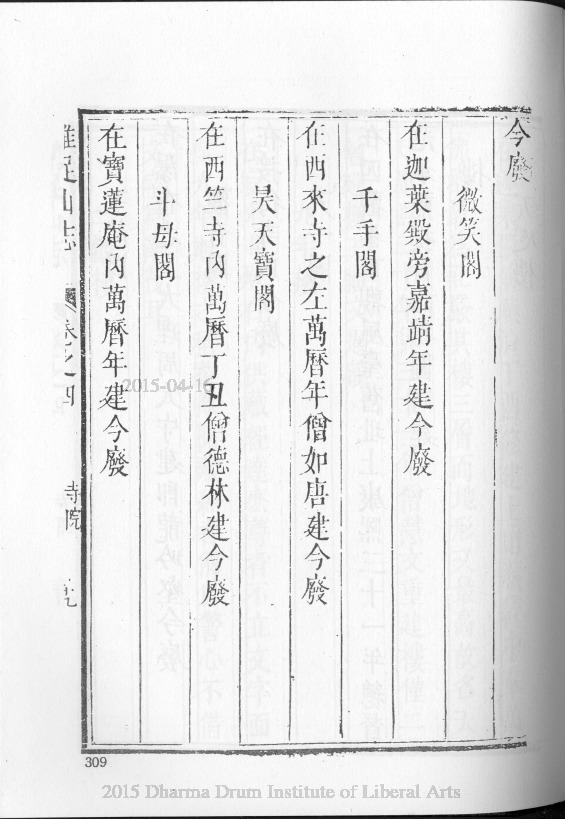 今廢
微笑閣
在迦葉殿旁嘉靖年建今廢
千手閣
在西來寺之左萬曆年僧如唐建今廢
昊天寶閣
在西竺寺內萬曆丁丑僧德林建今廢
斗母閣
在寶蓮庵內萬曆年建今廢
足山志 卷之四 寺院
309
2015-04-16
2015 Dharma Drum Institute of Liberal Arts